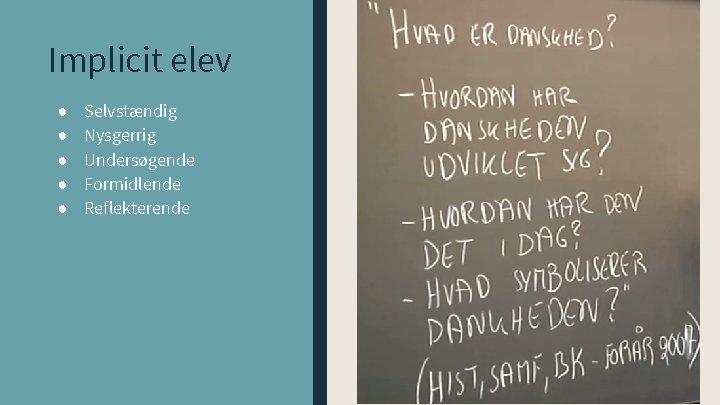 Implicit elev
● Selvstændig
● Nysgerrig
● Undersøgende
● Formidlende
● Reflekterende
"HVAD ER DANSKHED?
- HVORDAN HAR
DANSKHEDEN
UDVIKLET SYG?
- HVORDAN HAR DEN
DET I DAG?
- HVAD SYMBOLISERER
DANKHEDEN?"
(HIST, SAMF, BK - FORÅR 2007)